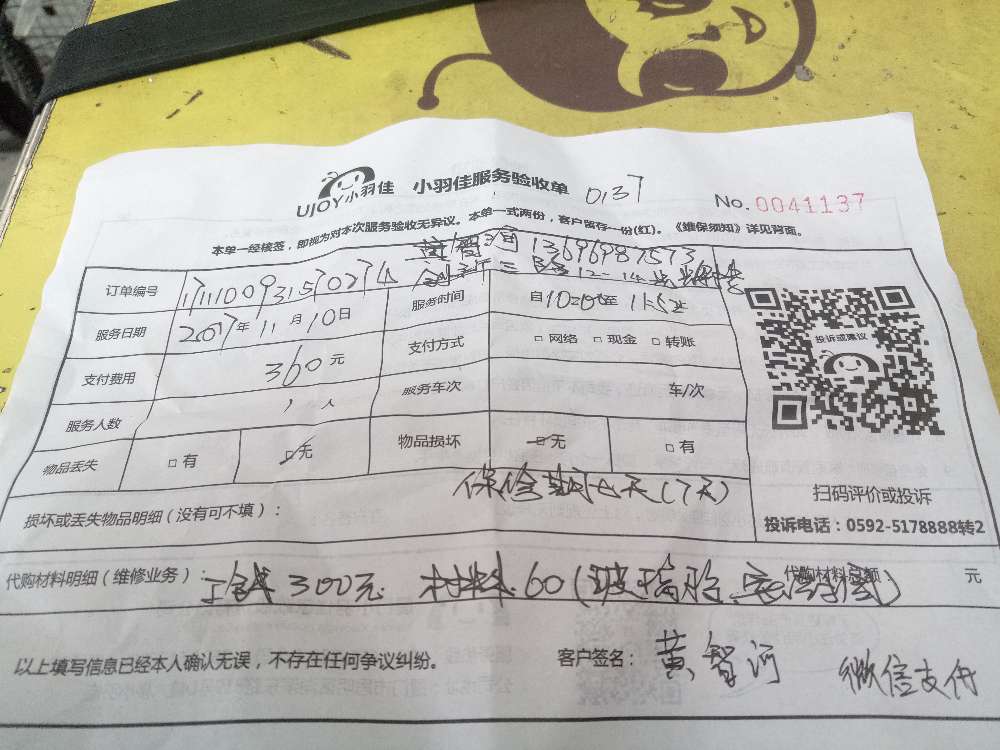 UJOY小羽佳 小羽佳服务验收单 0137 No.0041137
本单一经核签，即视为对本次服务验收无异议。本单一式两份，客户留存一份(红)。《维保须知》详见背面。
黄智河 13696987573
订单编号 171110093150274
服务时间 自10:20至11:52
服务日期 2017年11月10日
支付方式 □网络 □现金 □转账
支付费用 360元
服务车次 车/次
服务人数 1人
物品丢失 □有 □无 物品损坏 □无 □有
投诉或建议
扫码评价或投诉
投诉电话：0592-5178888转2
保修期七天(7天)
损坏或丢失物品明细（没有可不填）：
代购材料明细（维修业务）： 工钱300元 材料60(玻璃胶
代购材料总额： 元
以上填写信息已经本人确认无误，不存在任何争议纠纷。 客户签名： 黄智河 微信支付